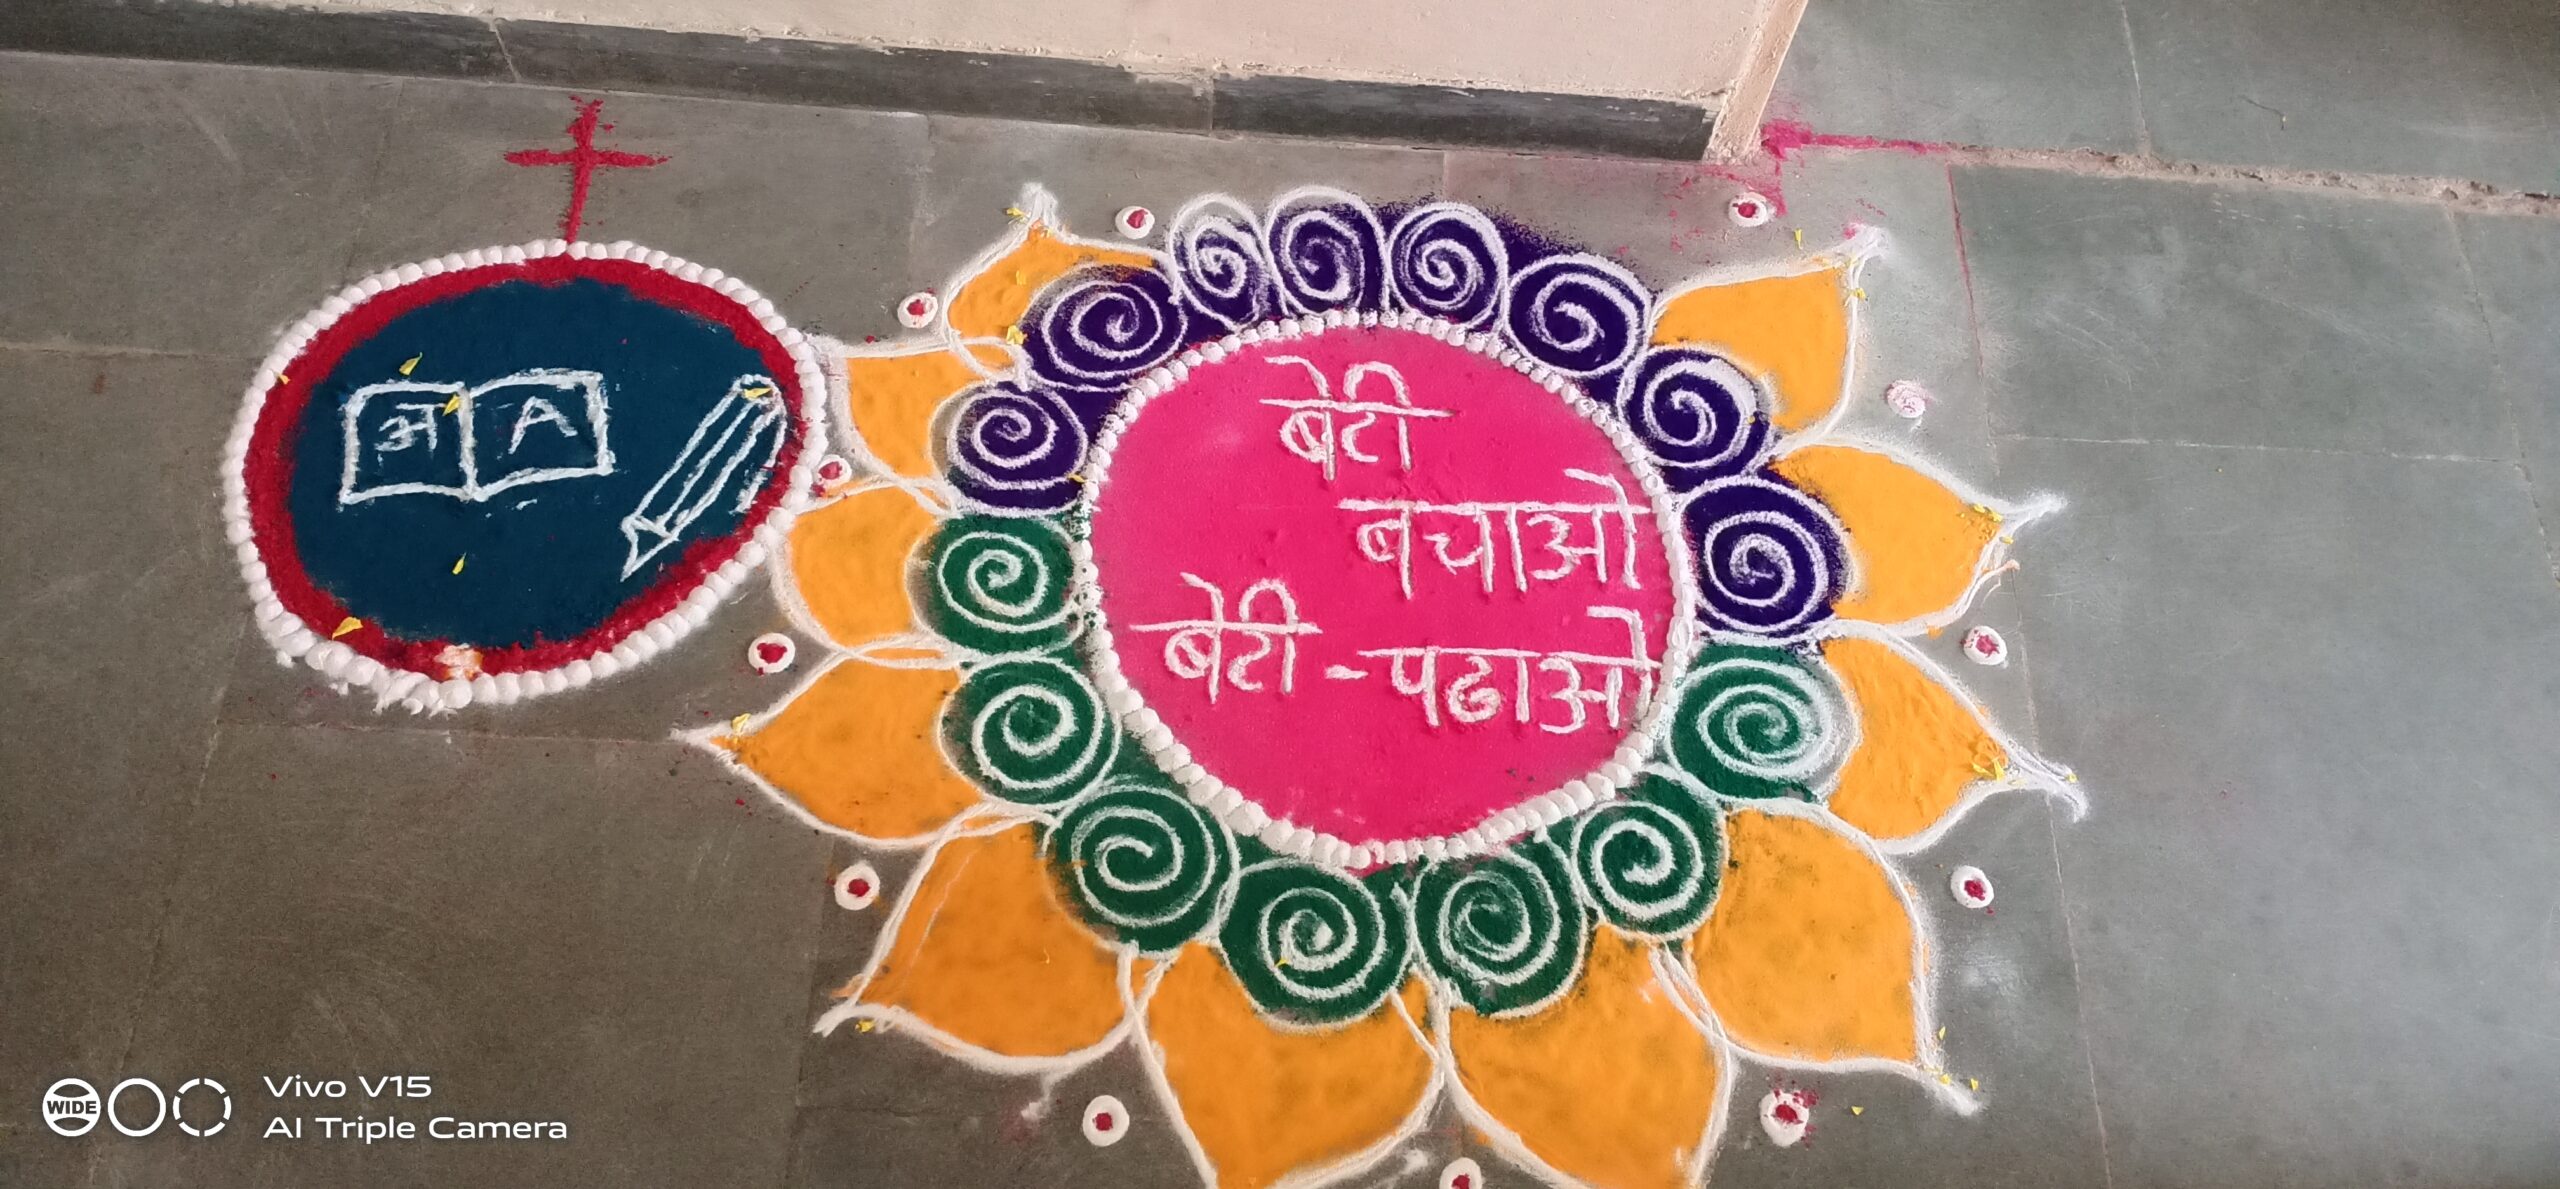 अ A
बेटी
बचाओ
बेटी - पढाओ
WIDE
Vivo V15
AI Triple Camera